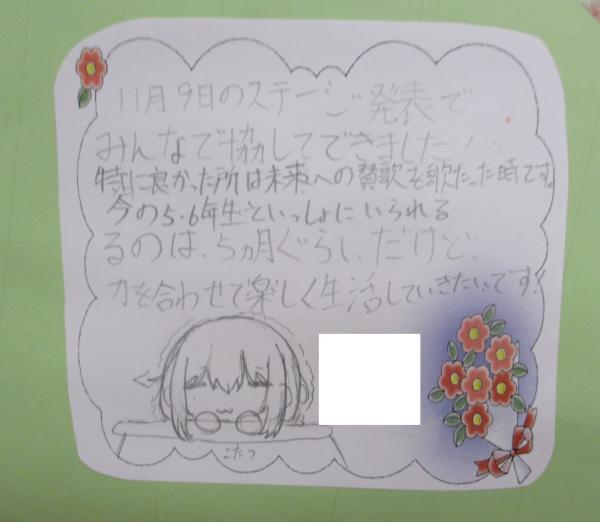 11月9日のステージ発表で
みんなで協力してできました!
特に良かった所は未来への賛歌を歌った時です。
今の5.6年生といっしょにいられる
るのは、5ヵ月ぐらい、だけど、
力を合わせて楽しく生活していきたいです!
こたつ